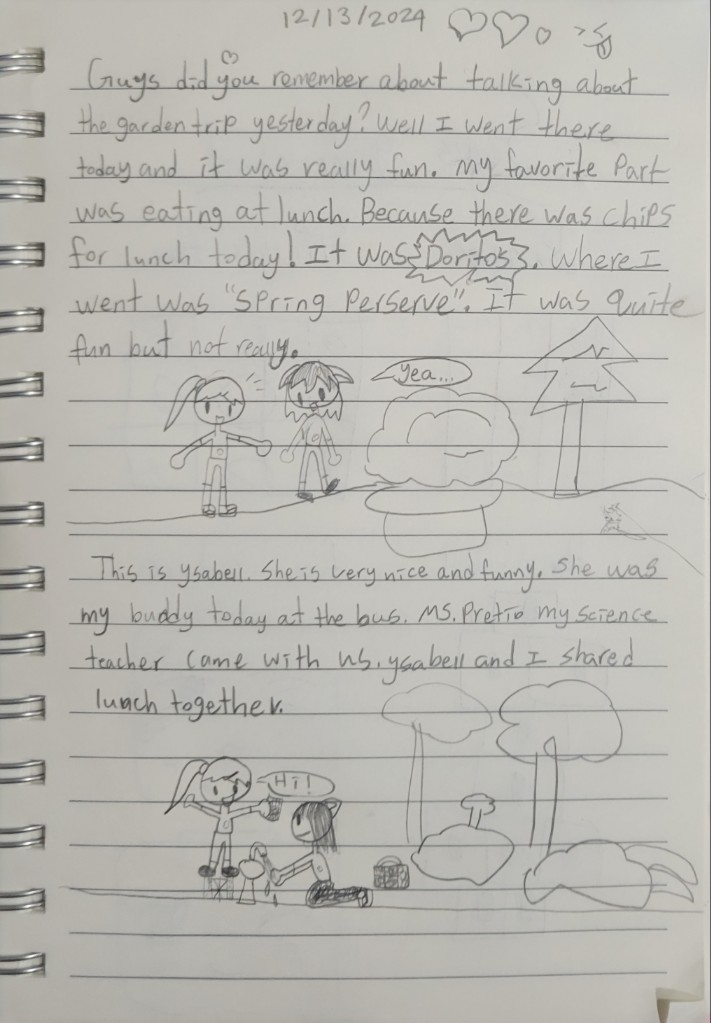 12/13/2024
Guys did you remember about talking about
the garden trip yesterday? Well I went there
today and it was really fun. My favorite Part
was eating at lunch. Because there was chips
for lunch today! It was Doritos. Where I
went was "Spring Perserve". It was quite
fun but not really.
yea...
This is ysabell. She is very nice and funny. She was
my buddy today at the bus. MS. Pretio my science
teacher came with us. ysabell and I shared
lunch together.
Hi!